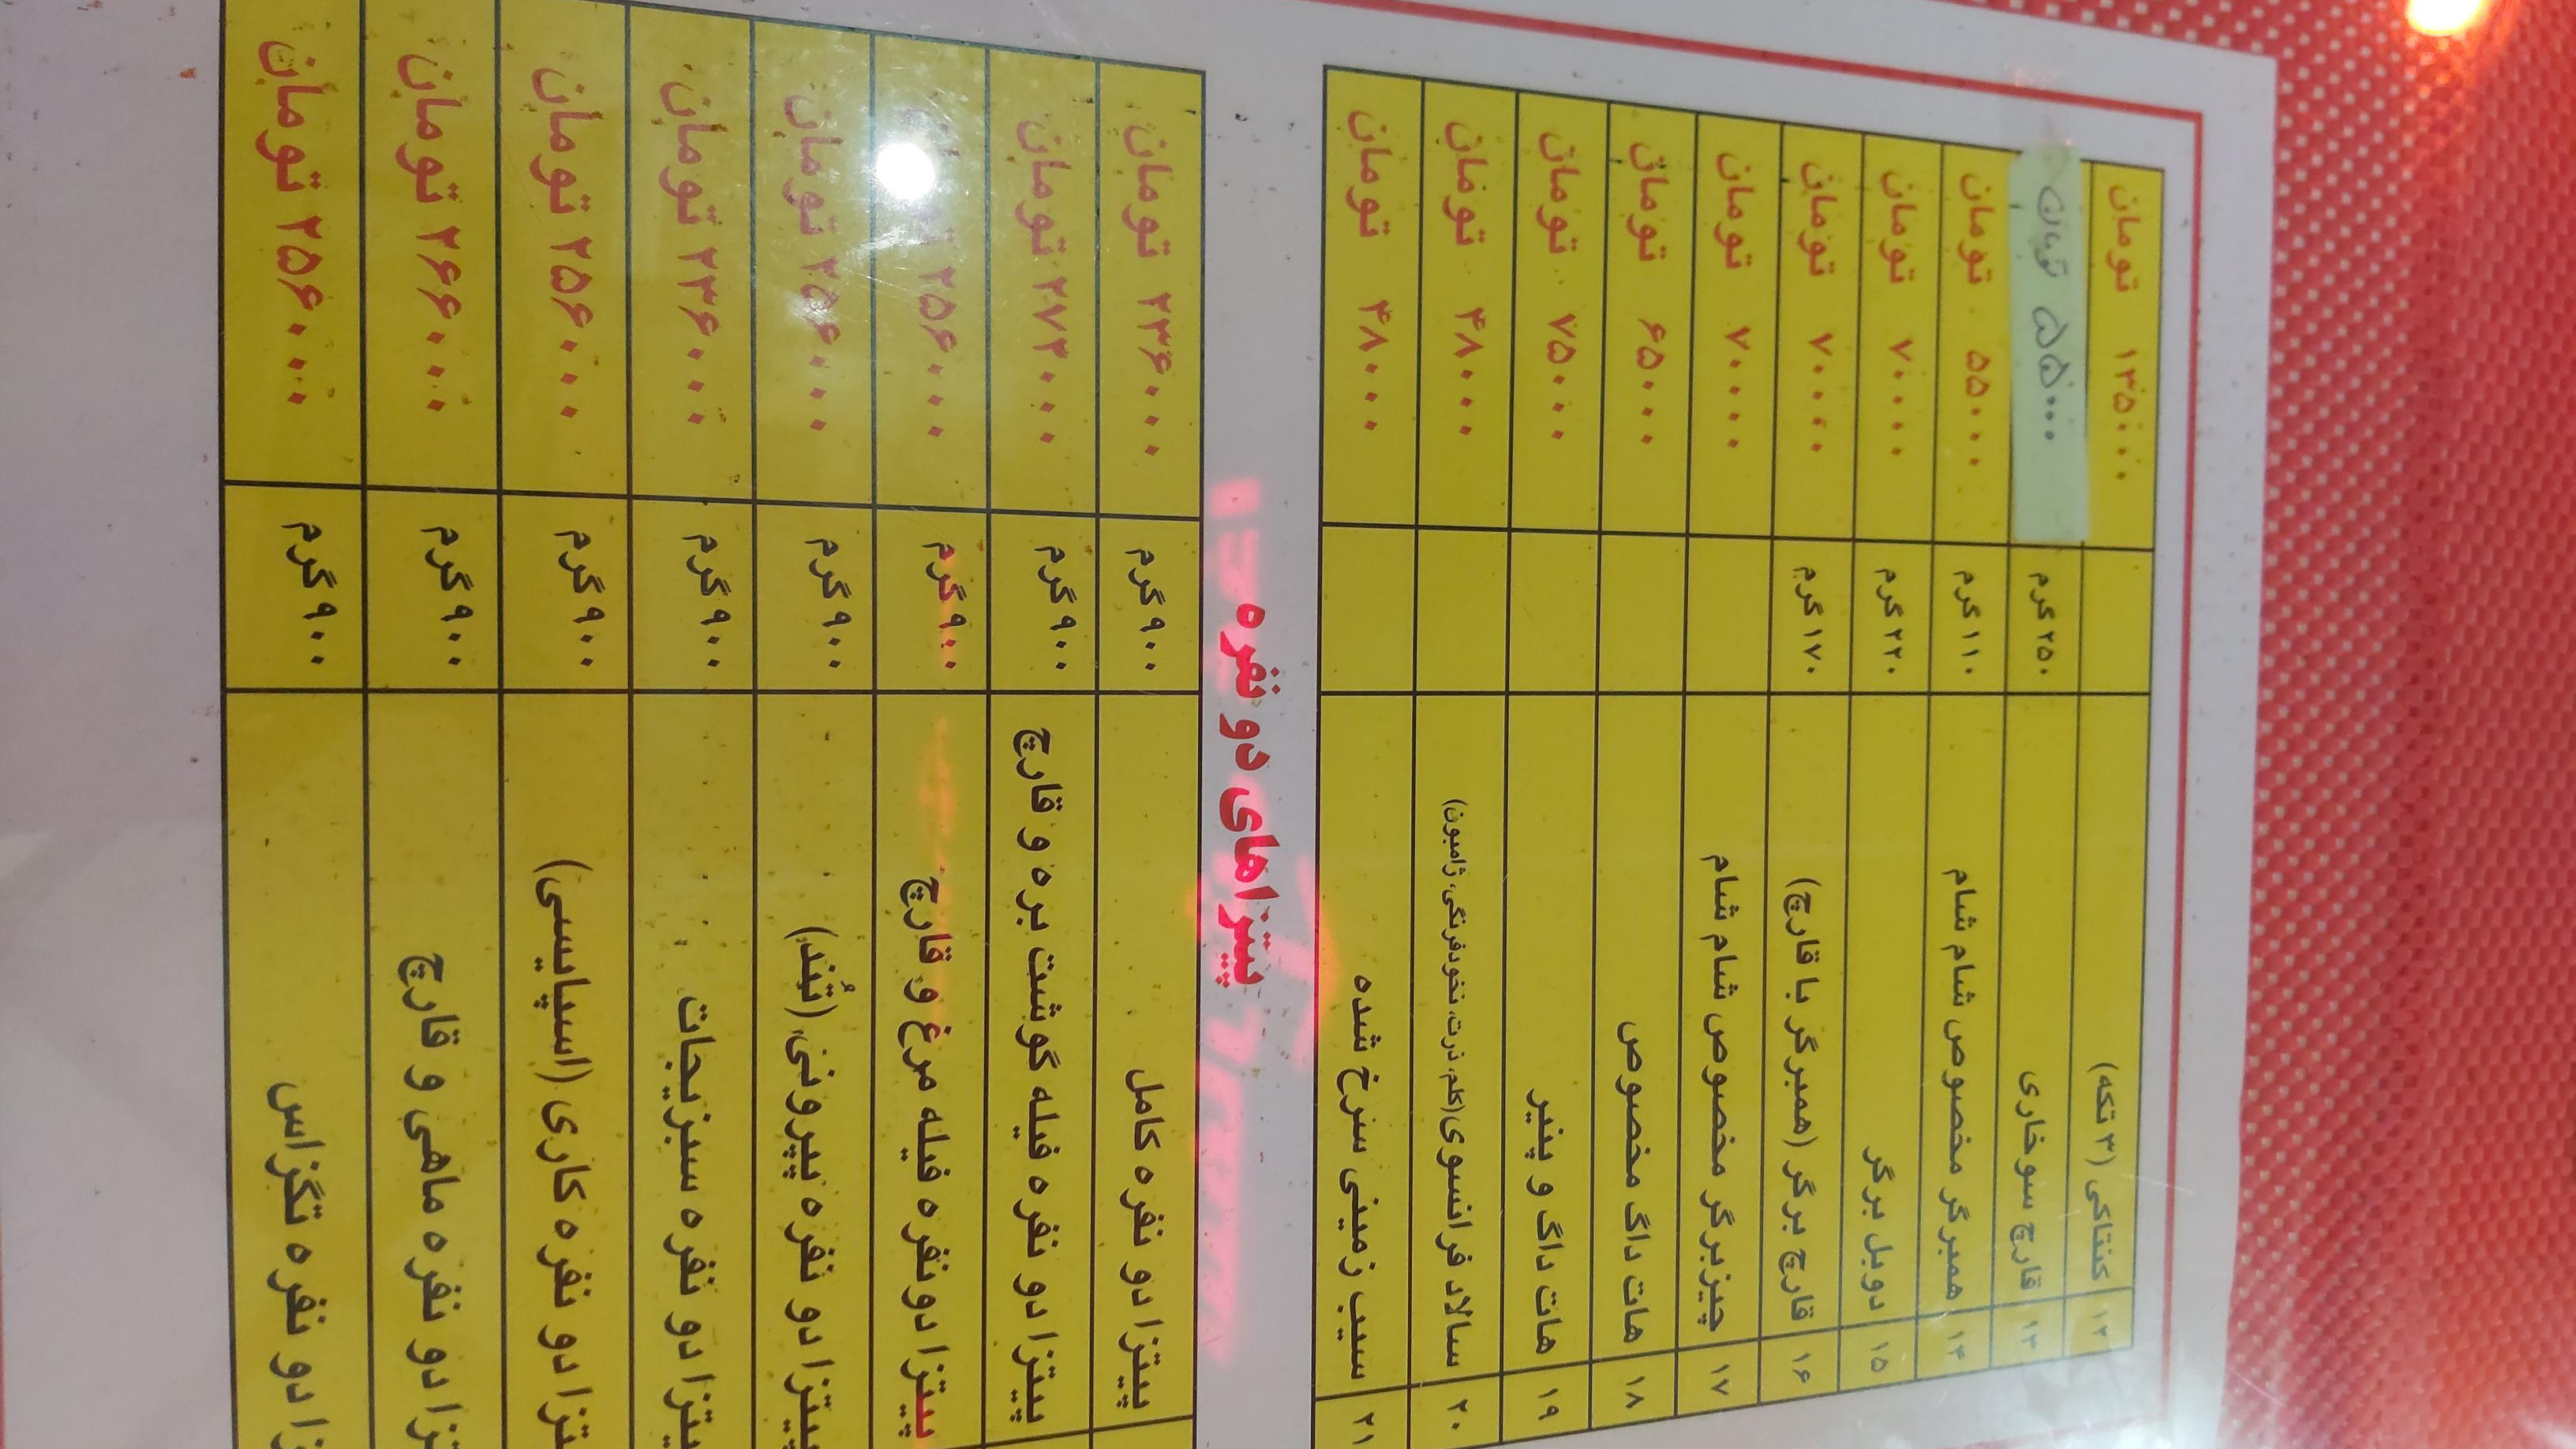 ۱۲ کنتاکی (۳ تکه) ۱۳۵۰۰۰ تومان
۱۳ قارچ سوخاری ۲۵۰ گرم ۵۵۰۰۰ تومان
۱۴ همبرگر مخصوص شام شام ۱۱۰ گرم ۵۵۰۰۰ تومان
۱۵ دوبل برگر ۲۲۰ گرم ۷۰۰۰۰ تومان
۱۶ قارچ برگر (همبرگر با قارچ) ۱۷۰ گرم ۷۰۰۰۰ تومان
۱۷ چیزبرگر مخصوص شام شام ۷۰۰۰۰ تومان
۱۸ هات داگ مخصوص ۶۵۰۰۰ تومان
۱۹ هات داگ و پنیر ۷۵۰۰۰ تومان
۲۰ سالاد فرانسوی(کلم، ذرت، نخودفرنگی، ژامبون) ۴۸۰۰۰ تومان
۲۱ سیب زمینی سرخ شده ۴۸۰۰۰ تومان
پیتزاهای دو نفره
پیتزا دو نفره کامل ۹۰۰ گرم ۲۳۶۰۰۰ تومان
پیتزا دو نفره فیله گوشت بره و قارچ ۹۰۰ گرم ۲۷۲۰۰۰ تومان
پیتزا دو نفره فیله مرغ و قارچ ۹۰۰ گرم ۲۵۶۰۰۰
پیتزا دو نفره پپرونی (تُند) ۹۰۰ گرم ۲۵۶۰۰۰ تومان
پیتزا دو نفره سبزیجات ۹۰۰ گرم ۲۳۶۰۰۰ تومان
دو نفره کاری (اسپایسی) ۹۰۰ گرم ۲۵۶۰۰۰ تومان
دو نفره ماهی و قارچ ۹۰۰ گرم ۲۶۶۰۰۰ تومان
دو نفره تگزاس ۹۰۰ گرم ۲۵۶۰۰۰ تومان